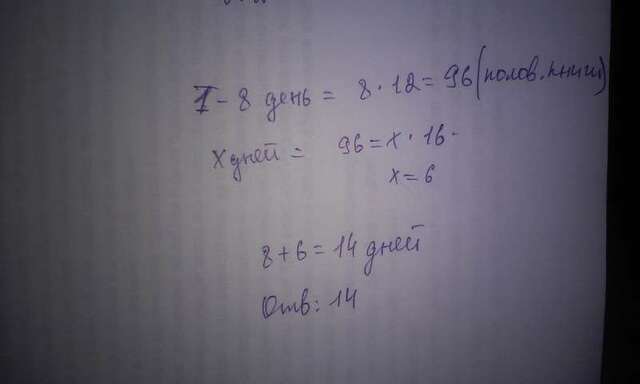 1 - 8 день = 8 · 12 = 96 (полов. книги)
x дней = 96 = x · 16
x = 6
8 + 6 = 14 дней
Отв: 14